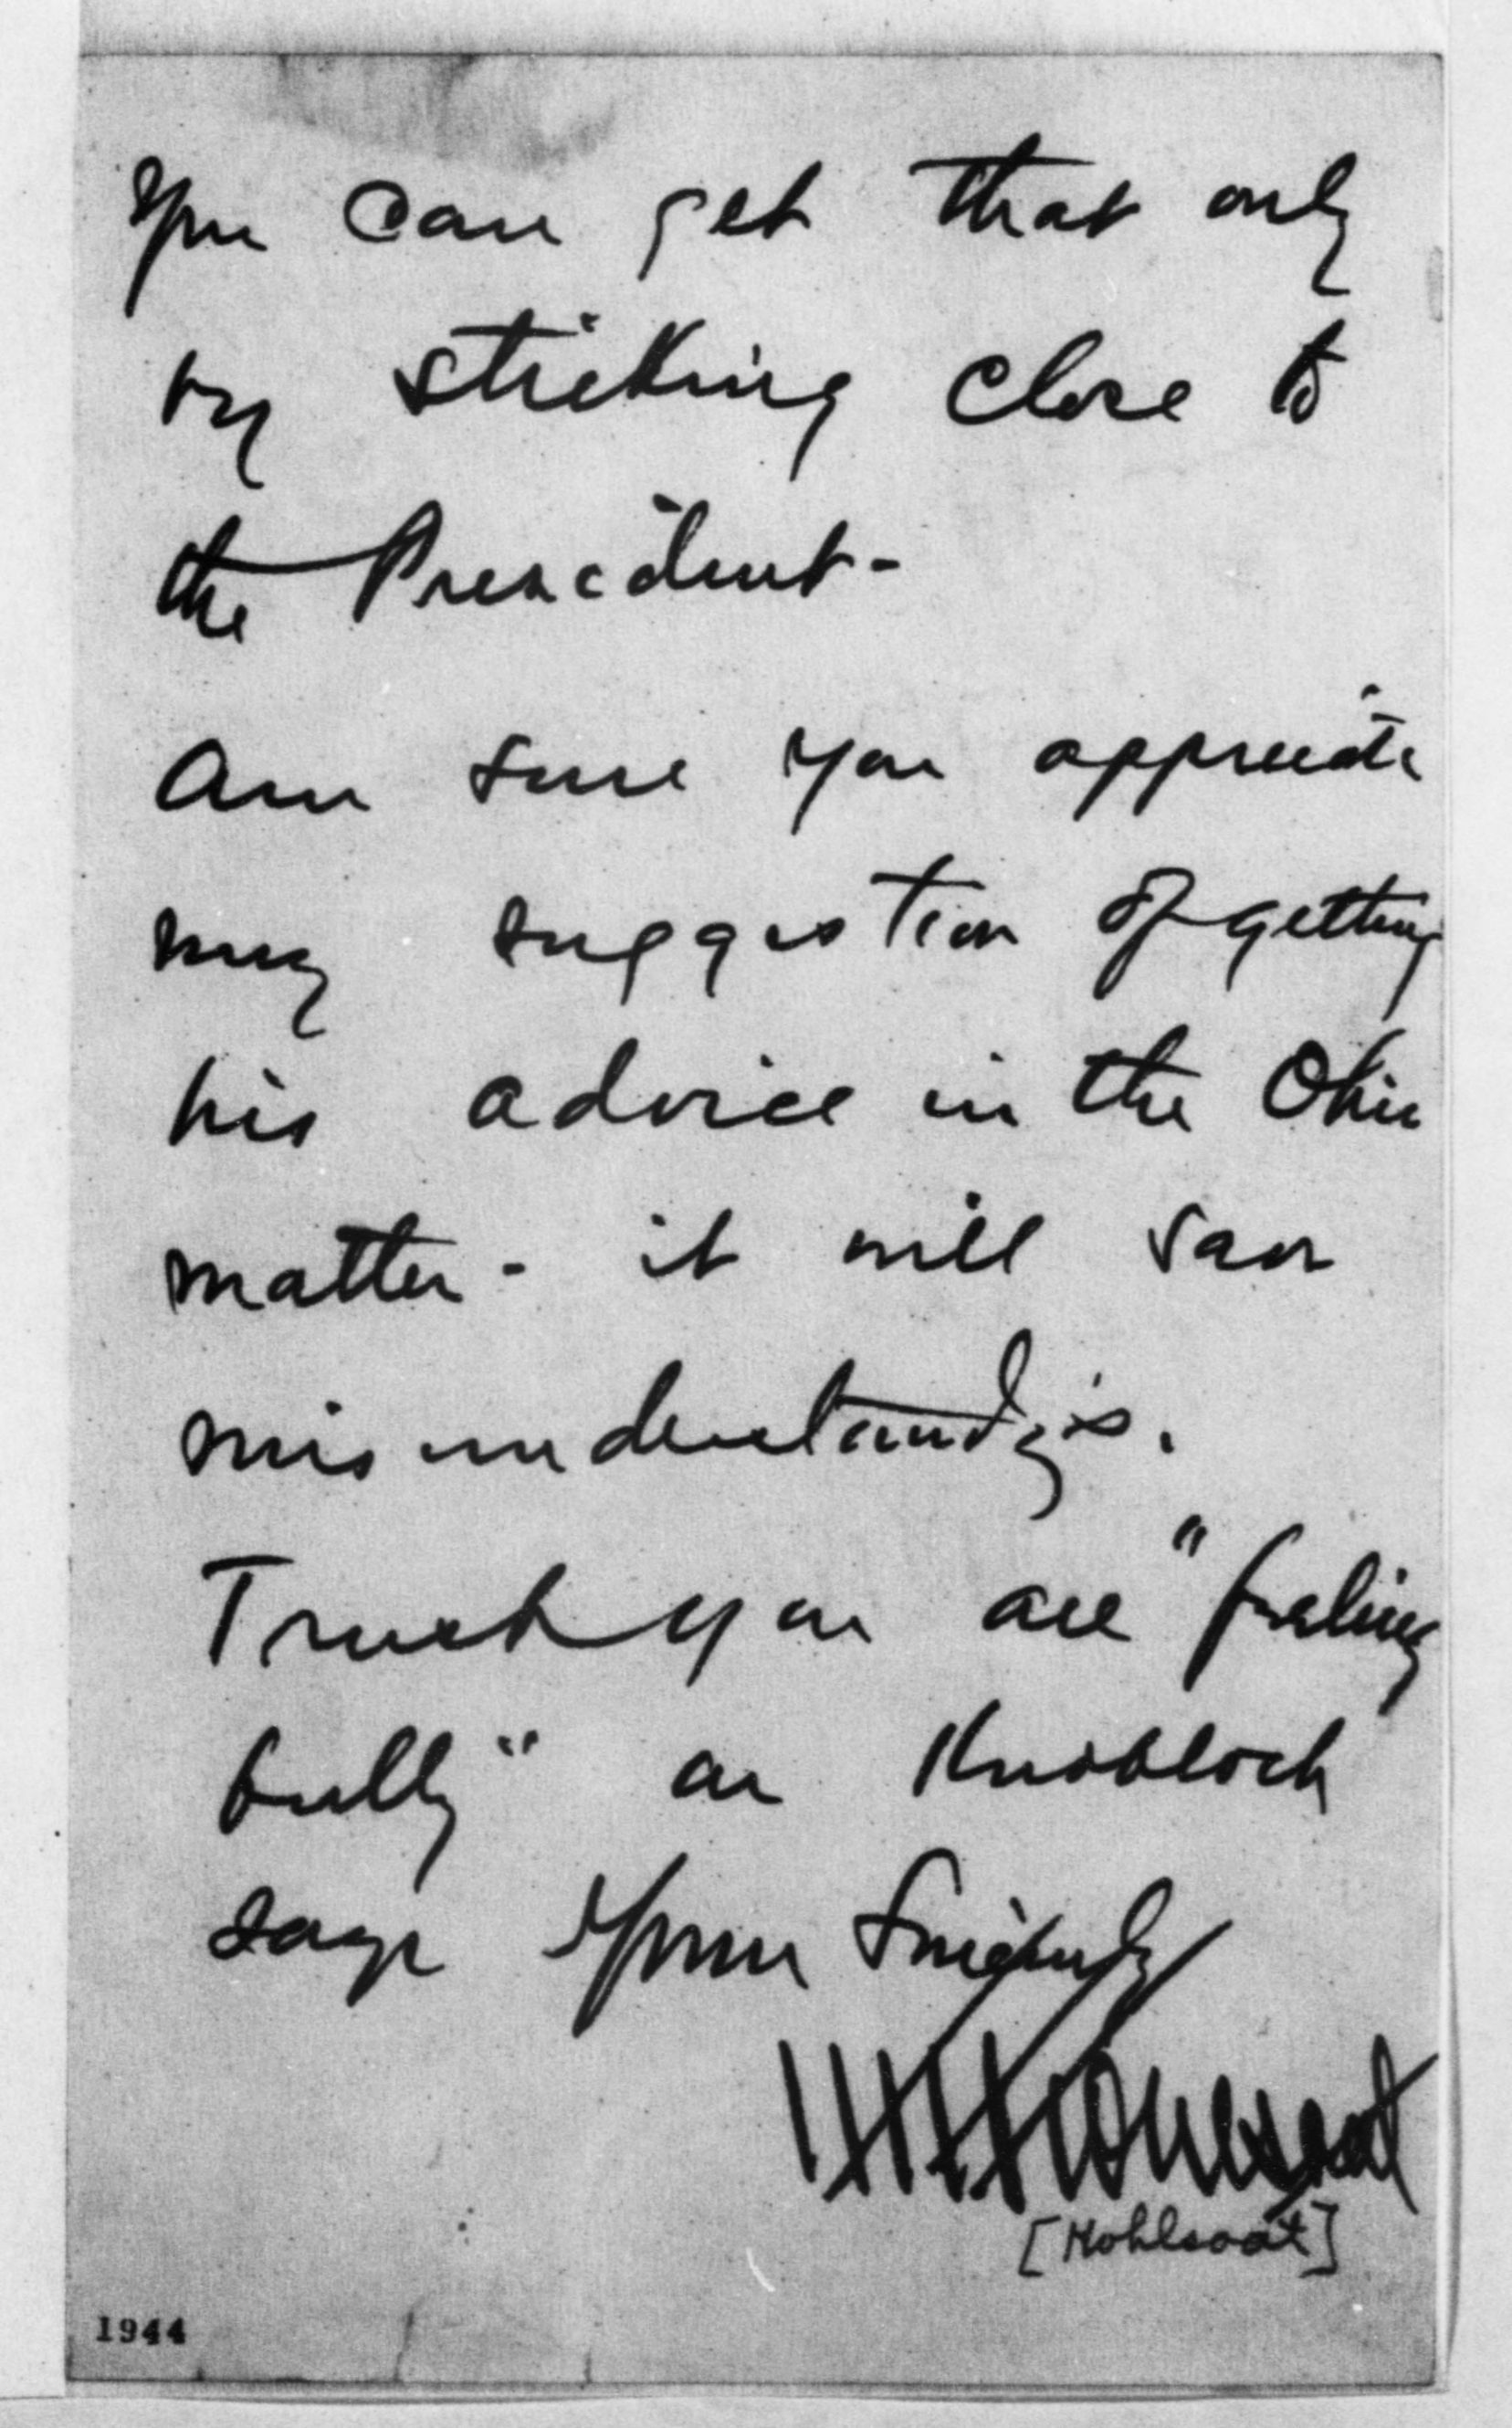 You can get that only
by sticking close to
the President -
Am sure you appreciate
my suggestion of getting
his advice in the Ohio
matter - it will save
misunderstandgis.
Trust you are "feeling
bully" as Knobloch
says Yours Sincerely
HHKohlsaat
[Kohlsaat]
1944